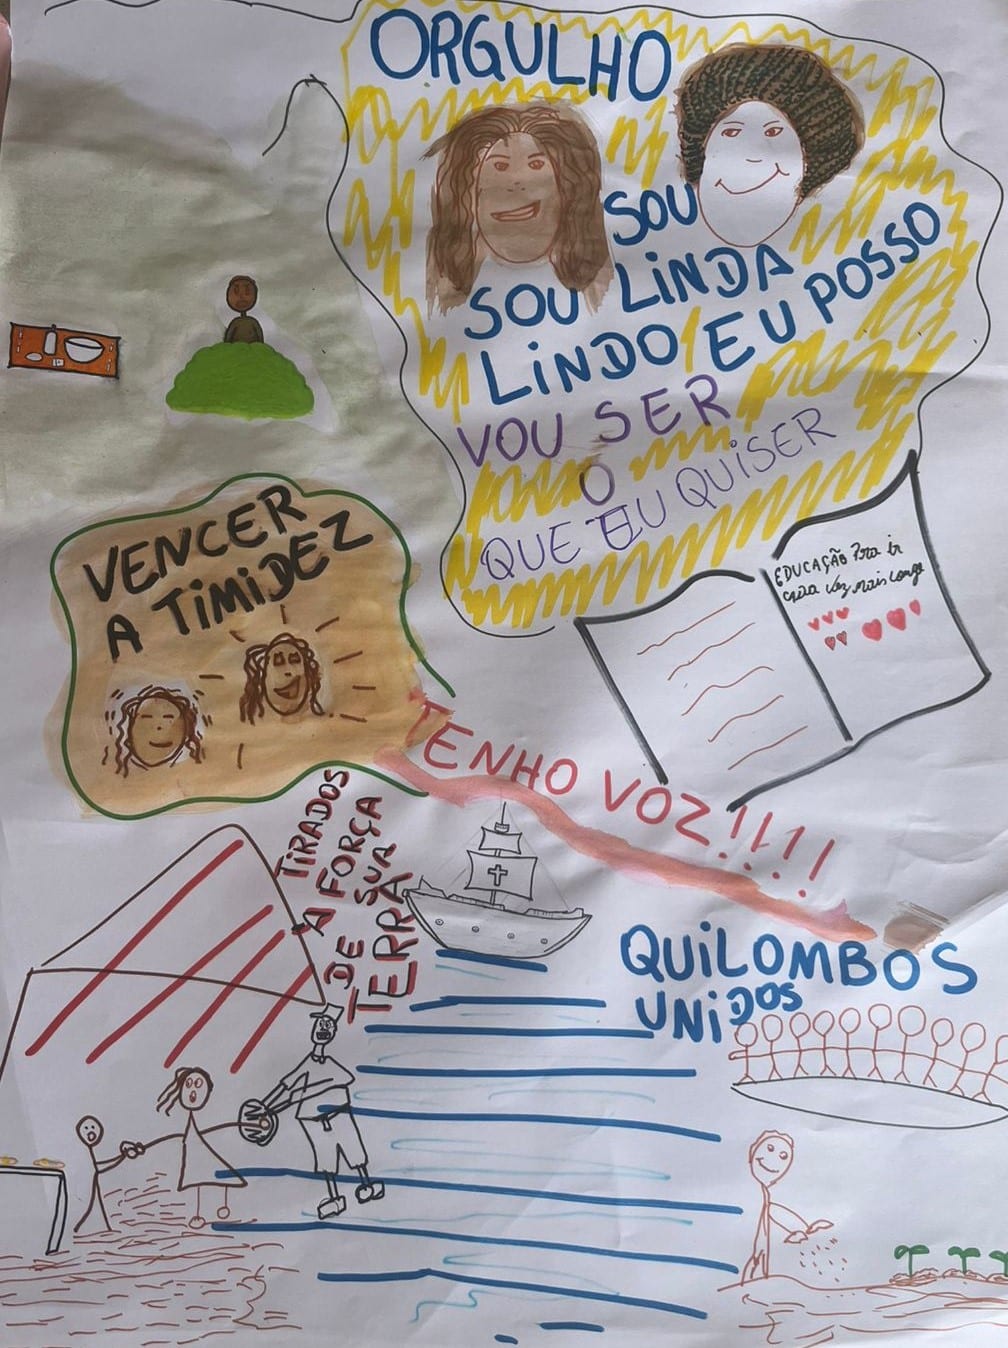 ORGULHO
SOU
SOU LINDA
LINDO EU POSSO
VOU SER
O
QUE EU QUISER
VENCER
A TIMIDEZ
EDUCAÇÃO Pra ir
cada vez mais longe
TENHO VOZ!!!!
TIRADOS
A FORÇA
DE SUA
TERRA
QUILOMBOS
UNIDOS